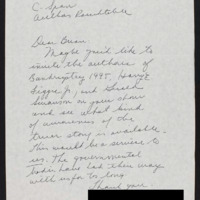 C-Span
Author Roundtable
Dear Brian
Maybe you'd like to
invite the authors of
Bankruptcy 1995, Harry E.
Figgie Jr., and Gerald
Swanson on your show
and see what kind
of awareness of the
true story is available.
This would be a service to
us. The governmental
bodies have had their way
with info for long
Thank you